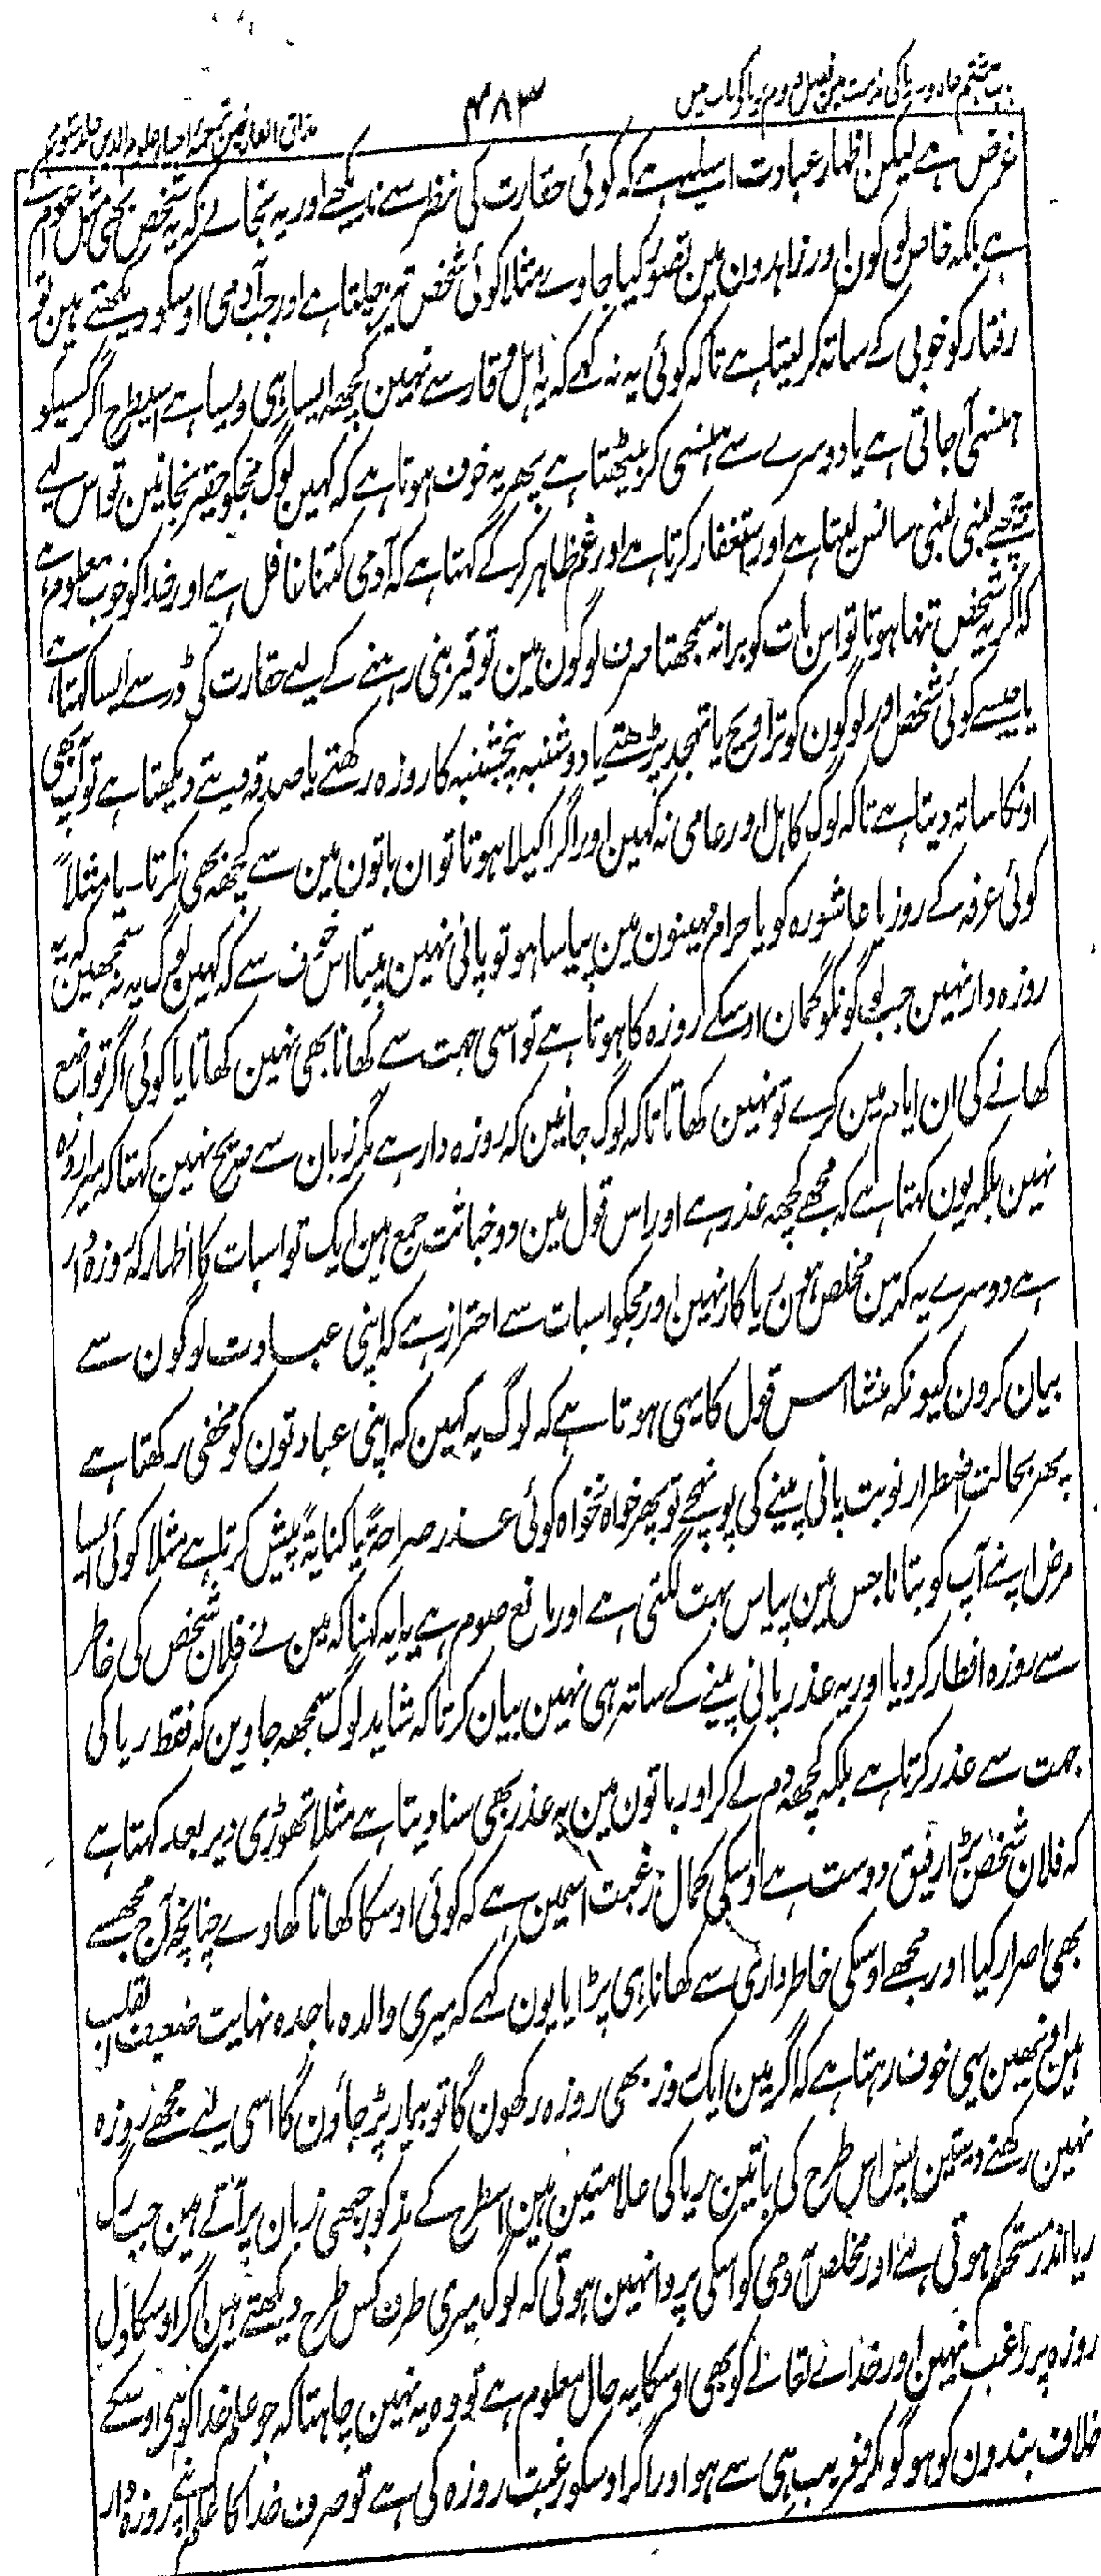 باب ہشتم جاہ و ریا کی مذمت مین فصل دوم ریا کے باب میں
۴۸۳
مذاق العارفین ترجمہ احیاء علوم الدین جلد سوم
غرض ہے لیکن اظہار عبادت اسلیے ہے کہ کوئی حقارت کی نظر سے ندیکھے اور یہ نجانے کہ یہ شخص بھی مثل عوام کے
ہے بلکہ خاص لوگون اور زاہدون مین تصور کیا جاوے مثلا کوئی شخص تیز چلتا ہے اور جب آدمی اوسکو دیکھتے ہین تو
رفتار کو خوبی کے ساتہ کر لیتا ہے تاکہ کوئی یہ نہ کہے کہ یہ اہل وقار سے نہین کچھ ایسا ہی ویسا ہے اسیطرح اگر کسیکو
ہنسی آجاتی ہے یا دوسرے سے ہنسی کر بیٹھتا ہے پھر یہ خوف ہوتا ہے کہ کہین لوگ مجکو حقیر نجانین تو اس لیے
قہقہے لنبی لنبی سانس لیتا ہے اور استغفار کرتا ہے اور غم ظاہر کر کے کہتا ہے کہ آدمی کتنا غافل ہے اور خدا کو خوب معلوم ہے
کہ اگر یہ شخص تنہا ہوتا تو اس بات کو برا نہ سمجھتا صرف لوگون مین توقیر بنی رہنے کے لیے حقارت کی ڈر سے ایسا کہتا ہے
یا جیسے کوئی شخص اور لوگون کو تراویح یا تہجد پڑھتے یا دوشنبہ پنجشنبہ کا روزہ رکھتے یا صدقہ دیتے دیکھتا ہے تو آپ بھی
اونکا ساتہ دیتا ہے تاکہ لوگ کاہل اور عامی نہ کہین اور اگر اکیلا ہوتا تو ان باتون مین سے کچھ بھی نکرتا۔ یا مثلاً
کوئی عرفہ کے روز یا عاشورہ کو یا حرام مہینون مین پیاسا ہو تو پانی نہین پیتا اس خوف سے کہ کہین لوگ یہ نہ سمجھین کہ یہ
روزہ دار نہین جب لوگونکو گمان اوسکے روزہ کا ہوتا ہے تو اسی جہت سے کھانا بھی نہین کھاتا یا کوئی اگر تواضع
کھانے کی ان ایام مین کرے تو نہین کھاتا تاکہ لوگ جانین کہ روزہ دار ہے مگر زبان سے صریح نہین کہتا کہ میرا روزہ
نہین بلکہ یون کہتا ہے کہ مجھے کچھ عذر ہے اور اس قول مین دو خباثت جمع ہین ایک تو اسبات کا اظہار کہ روزہ دار
ہے دوسرے یہ کہ مین مخلص ہون ریاکار نہین اور مجکو اسبات سے احتراز ہے کہ اپنی عبادت لوگون سے
بیان کرون کیونکہ منشا اس قول کا یہی ہوتا ہے کہ لوگ یہ کہین کہ اپنی عبادتون کو مخفی رکھتا ہے
پھر بحالت اضطرار نوبت پانی پینے کی پونہچے تو پھر خواہ نخواہ کوئی عذر صراحۃً یا کنایۃً پیش کرتا ہے مثلا کوئی ایسا
مرض اپنے آپ کو بتانا جس مین پیاس بہت لگتی ہے اور مانع صوم ہے یا یہ کہنا کہ مین نے فلان شخص کی خاطر
سے روزہ افطار کر دیا اور یہ عذر پانی پینے کے ساتہ ہی نہین بیان کرتا کہ شاید لوگ سمجھ جاوین کہ فقط ریا کی
جہت سے عذر کرتا ہے بلکہ کچھ دم لے کر اور باتون مین یہ عذر بھی سنا دیتا ہے مثلا تھوڑی دیر بعد کہتا ہے
کہ فلان شخص بڑا رفیق دوست ہے اوسکی کمال رغبت اسمین ہے کہ کوئی اوسکا کھانا کھاوے چنانچہ آج مجھسے
بھی اصرار کیا اور مجھے اوسکی خاطر داری سے کھانا ہی پڑا یا یون کہے کہ میری والدہ ماجدہ نہایت ضعیف القلب
ہین اونھین یہی خوف رہتا ہے کہ اگر مین ایک روز بھی روزہ رکھون گا تو بیمار پڑ جاؤن گا اسی لیے مجھے روزہ
نہین رکھنے دیتین پس اس طرح کی باتین ریا کی علامتین ہین اسطرح کے مذکور جبھی زبان پر آتے ہین جب رگ
ریا اندر مستحکم ہوتی ہے اور مخلص آدمی کو اسکی پروا نہین ہوتی کہ لوگ میری طرف کس طرح دیکھتے ہین اگر اوسکا دل
روزہ پر راغب نہین اور خداے تعالے کو بھی اوسکا یہ حال معلوم ہے تو وہ یہ نہین چاہتا کہ جو علم خدا کو ہی اوسکے
خلاف بندون کو ہو گو مکر و فریب ہی سے ہو اور اگر اوسکو رغبت روزہ کی ہے تو صرف خدا کا علم اپنے روزہ دار